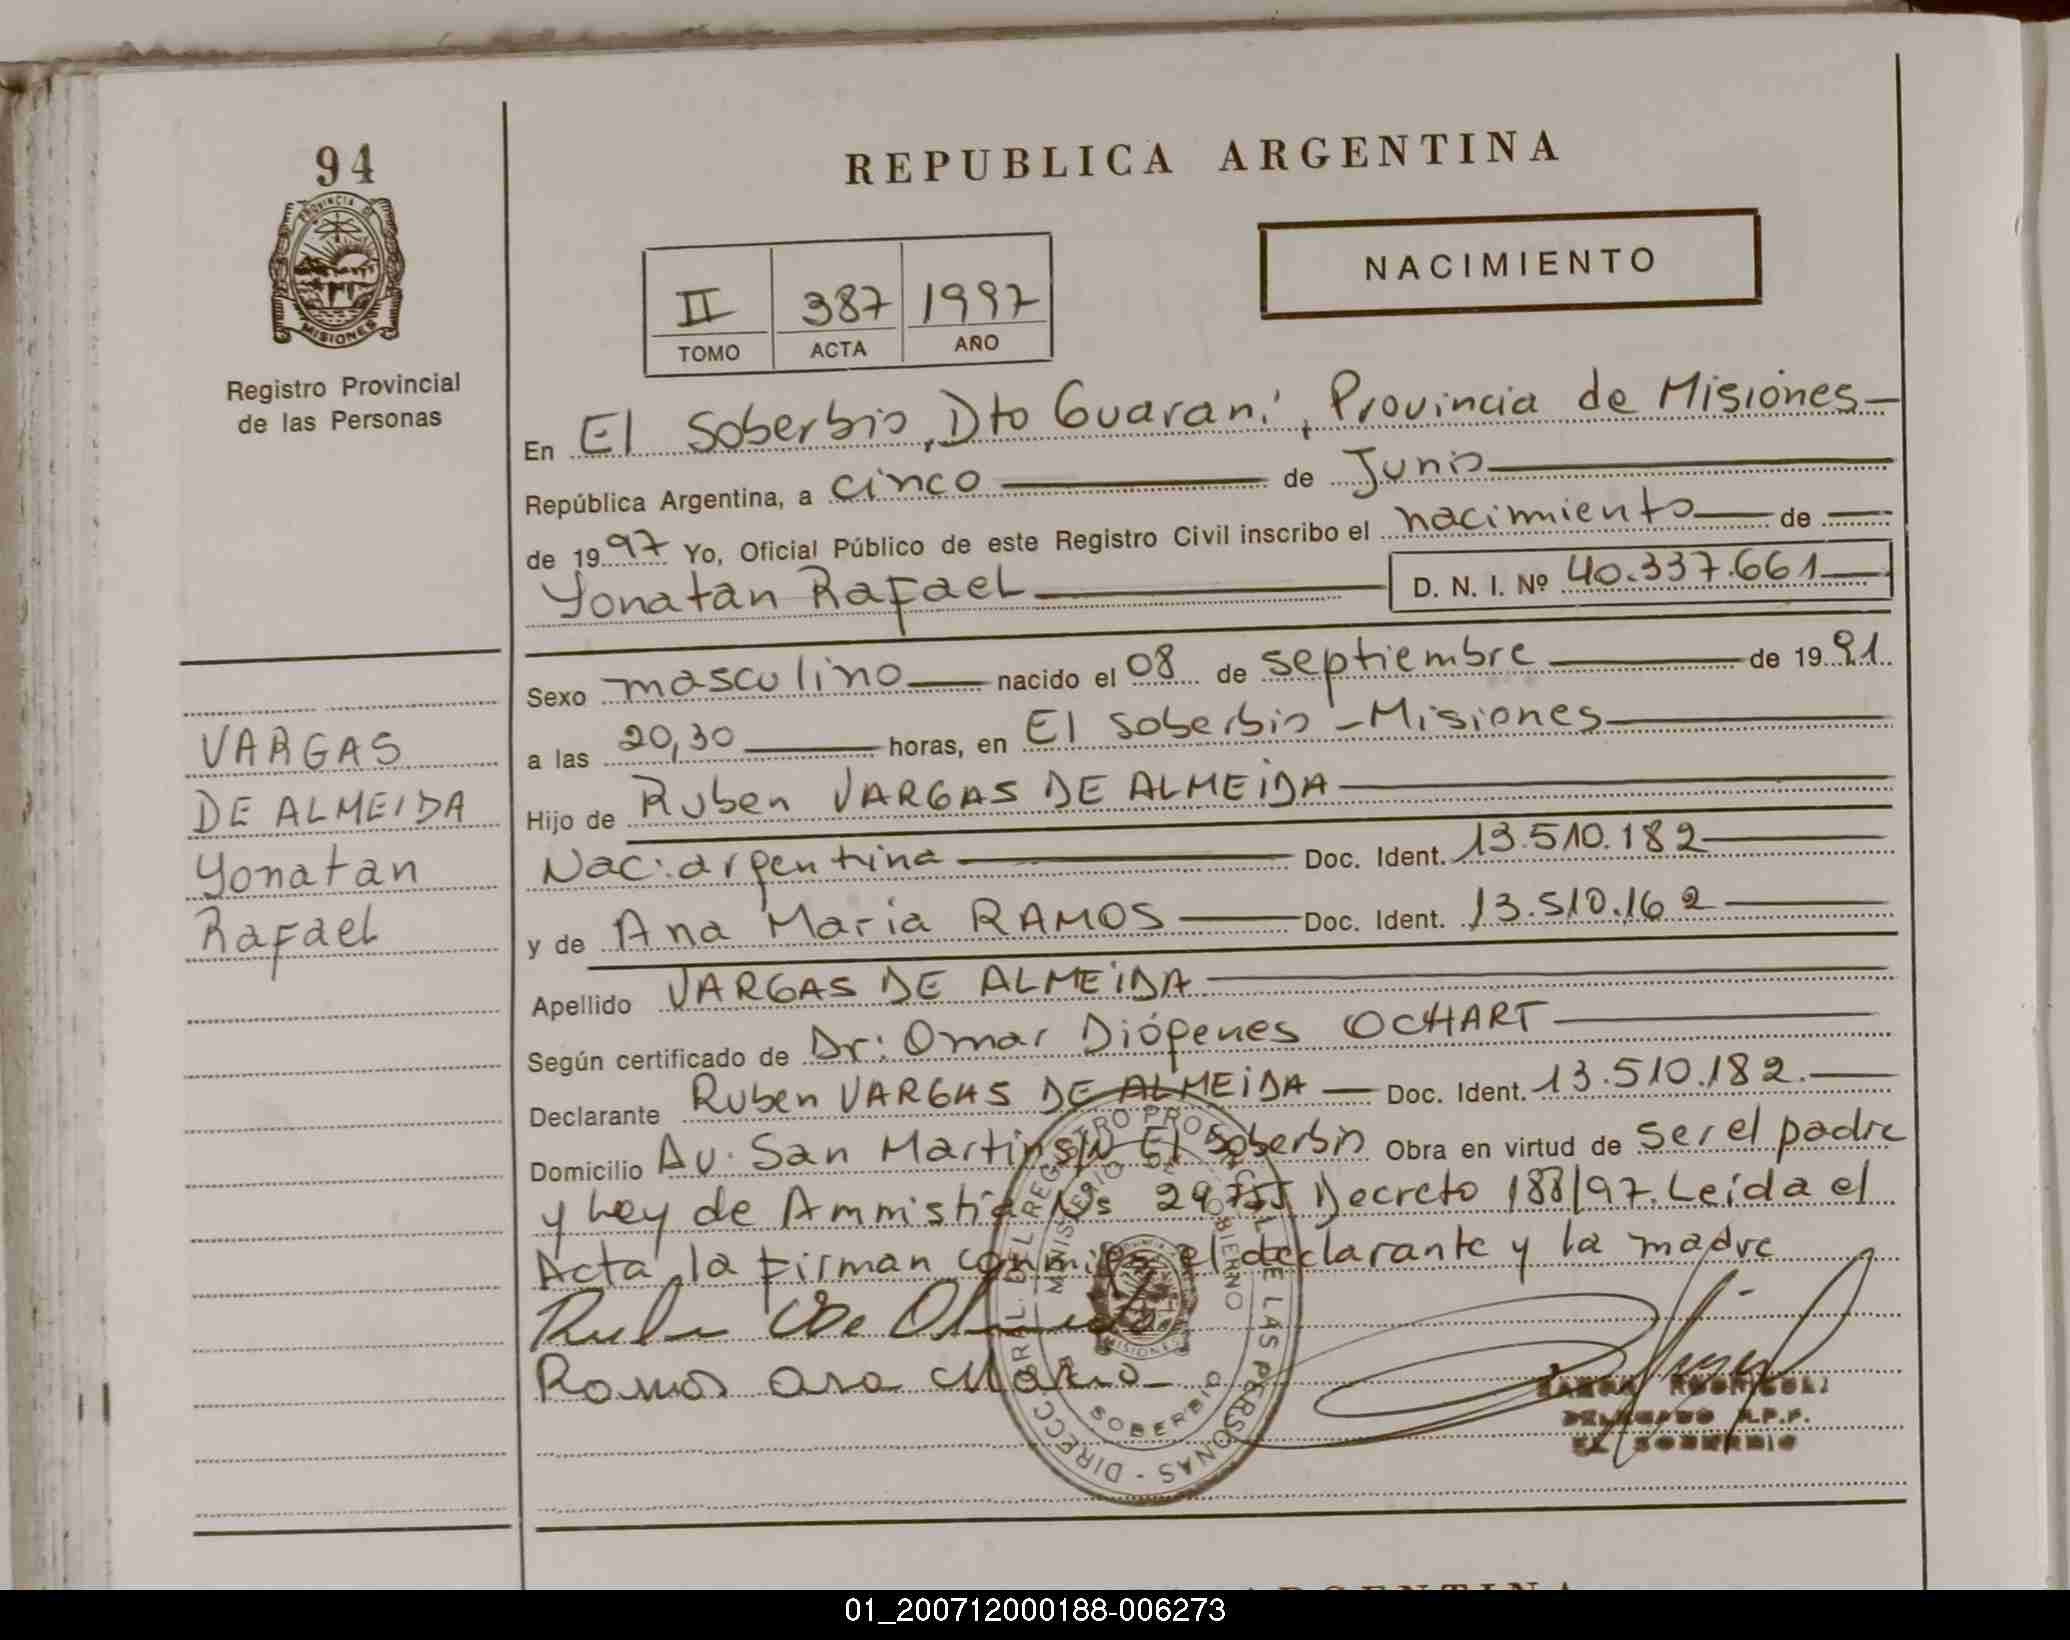 94
PROVINCIA DE
MISIONES
Registro Provincial
de las Personas
REPUBLICA ARGENTINA
NACIMIENTO
II 387 1997
TOMO ACTA AÑO
En El Soberbio, Dto Guaraní, Provincia de Misiones
República Argentina, a cinco de Junio
de 1997 Yo, Oficial Público de este Registro Civil inscribo el nacimiento de
Yonatan Rafael D. N. I. Nº 40.337.661
Sexo masculino nacido el 08 de septiembre de 1991
a las 20,30 horas, en El Soberbio - Misiones
Hijo de Ruben VARGAS DE ALMEIDA
Nac: argentina Doc. Ident. 13.510.182
y de Ana Maria RAMOS Doc. Ident. 13.510.162
Apellido VARGAS DE ALMEIDA
Según certificado de Dr: Omar Diógenes OCHART
Declarante Ruben VARGAS DE ALMEIDA Doc. Ident. 13.510.182.
Domicilio Av. San Martin s/N El Soberbio Obra en virtud de ser el padre
y Ley de Amnistía Decreto 188/97. Leída el
Acta, la firman conmigo el declarante y la madre
Ramos Ana Maria
VARGAS
DE ALMEIDA
Yonatan
Rafael
DIRECC. GRAL. DEL REGISTRO PROVINCIAL DE LAS PERSONAS
MINISTERIO DE GOBIERNO
SOBERBIO
MISIONES
DELEGADO R.P.P.
EL SOBERBIO
ARGENTINA
01_200712000188-006273